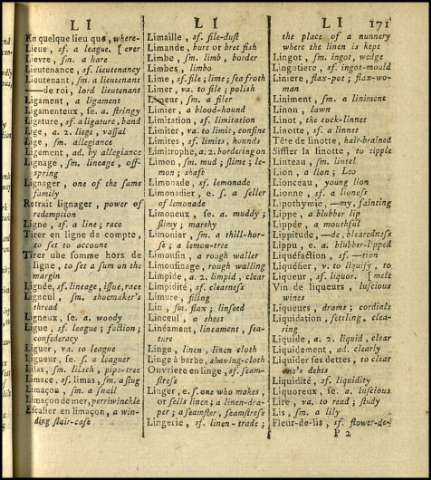 L I
En quelque lieu que, where-
Lieue, sf. a league. [ever
Lievre, sm. a hare
Lieutenance, sf. lieutenancy
Lieutenant, sm. a lieutenant
—de roi, lord lieutenant
Ligament, a ligament
Ligamenteux, se. a. stringy
Ligature, sf. aligature, band
Lige, a. 2. liege, vassal
Lige, sm. allegiance
Ligement, ad. by allegiance
Lignage, sm. lineage, off-
spring
Lignager, one of the same
family
Retrait lignager, power of
redemption
Ligne, sf. a line; race
Tirer en ligne de compte,
to set to account
Tirer une somme hors de
ligne, to set a sum on the
margin
Lignée, sf. lineage, issue, race
Ligneul, sm. shoemaker's
thread
Ligneux, se. a. woody
Ligue, sf. league; faction;
confederacy
Liguer, va. to league
Ligueur, se. f. a leaguer
Lilas, sm. lilach, pipe-tree
Limace, sf. limas, sm. a slug
Limaçon, sm. a snail
Limaçon de mer, perriwinckle
Escalier en limaçon, a win-
ding stair-case
L I
Limaille, sf. file-dust
Limande, burt or bret fish
Limbe, sm. limb, border
Limbes, limbo
Lime, sf. file; lime; sea froth
Limer, va. to file; polish
Limeur, sm. a filer
Limier, a blood-hound
Limitation, sf. limitation
Limiter, va. to limit, confine
Limites, sf. limits, bounds
Limitrophe, a. 2. bordering on
Limon, sm. mud; slime; le-
mon; shaft
Limonade, sf. lemonade
Limonadier, e. f. a seller
of lemonade
Limoneux, se. a. muddy;
slimy; marshy
Limonier, sm. a thill-hor-
se; a lemon-tree
Limousin, a rough waller
Limousinage, rough walling
Limpide, a. 2. limpid, clear
Limpidité, sf. clearness
Limure, filing
Lin, sm. flax; linseed
Linceul, a sheet
Linéament, lineament, fea-
ture
Linge, linen, linen cloth
Linge à barbe, shaving-cloth
Ouvriere en linge, sf. seam-
stress
Linger, e. f. one who makes,
or sells linen; a linen-dra-
per; a seamster, seamstress
Lingerie, sf. linen-trade;
L I 171
the place of a nunnery
where the linen is kept
Lingot, sm. ingot, wedge
Lingotiere, sf. ingot-mould
Liniere, flax-pat; flax-wo-
man
Liniment, sm. a liniment
Linon, lawn
Linot, the cock-linnet
Linotte, sf. a linnet
Tête de linotte, hair-brained
Siffler la linotte, to tipple
Linteau, sm. lintel
Lion, a lion; Leo
Lionceau, young lion
Lionne, sf. a lioness
Lipothymie, —my, fainting
Lippe, a blubber lip
Lippée, a mouthful
Lippitude, —de, blearedness
Lippu, e. a. blubber-lipped
Liquéfaction, sf. —tion
Liquéfier, v. to liquify, to
Liqueur, sf. liquor. [melt
Vin de liqueurs, luscious
wines
Liqueurs, drams; cordials
Liquidation, settling, clea-
ring
Liquide, a. 2. liquid, clear
Liquidement, ad. clearly
Liquider ses dettes, to clear
one's debts
Liquidité, sf. liquidity
Liquoreux, se. a. luscious
Lire, va. to read; study
Lis, sm. a lily
Fleur-de-lis, sf. flower-de-
P 2